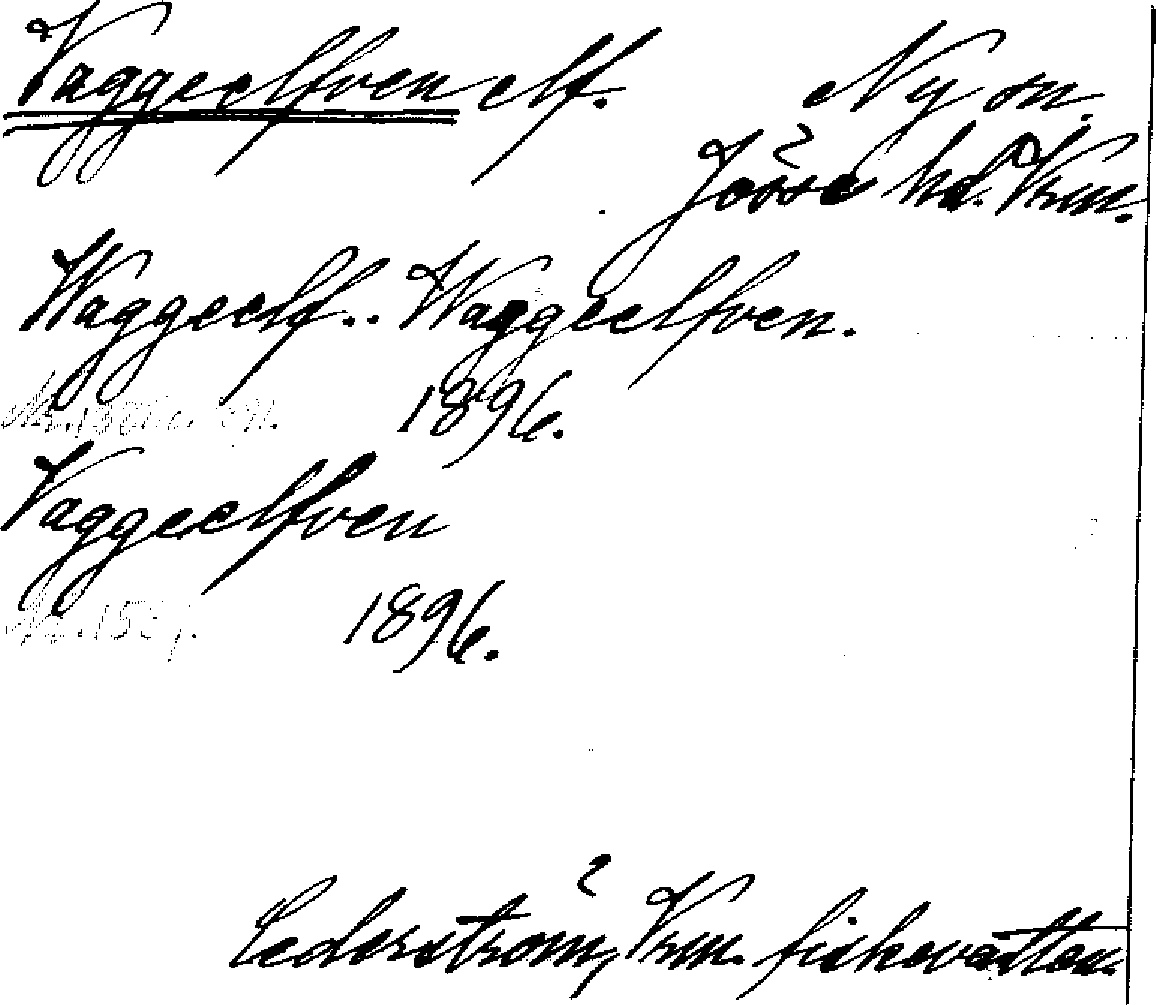 Vaggeelfven elf. Ny sn.
Jösse hd. Vrm.
Waggeelf.. Waggeelfven.
1896.
Vaggeelfven
1896.
Cederström, Vrm. fiskevatten.